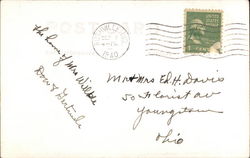 POST CARD
1940
1 CENT
the home of Mrs Willkie
Dow & Gertrude
Mr & Mrs Ed. H. Davis
50 Florist av
Youngstown
Ohio